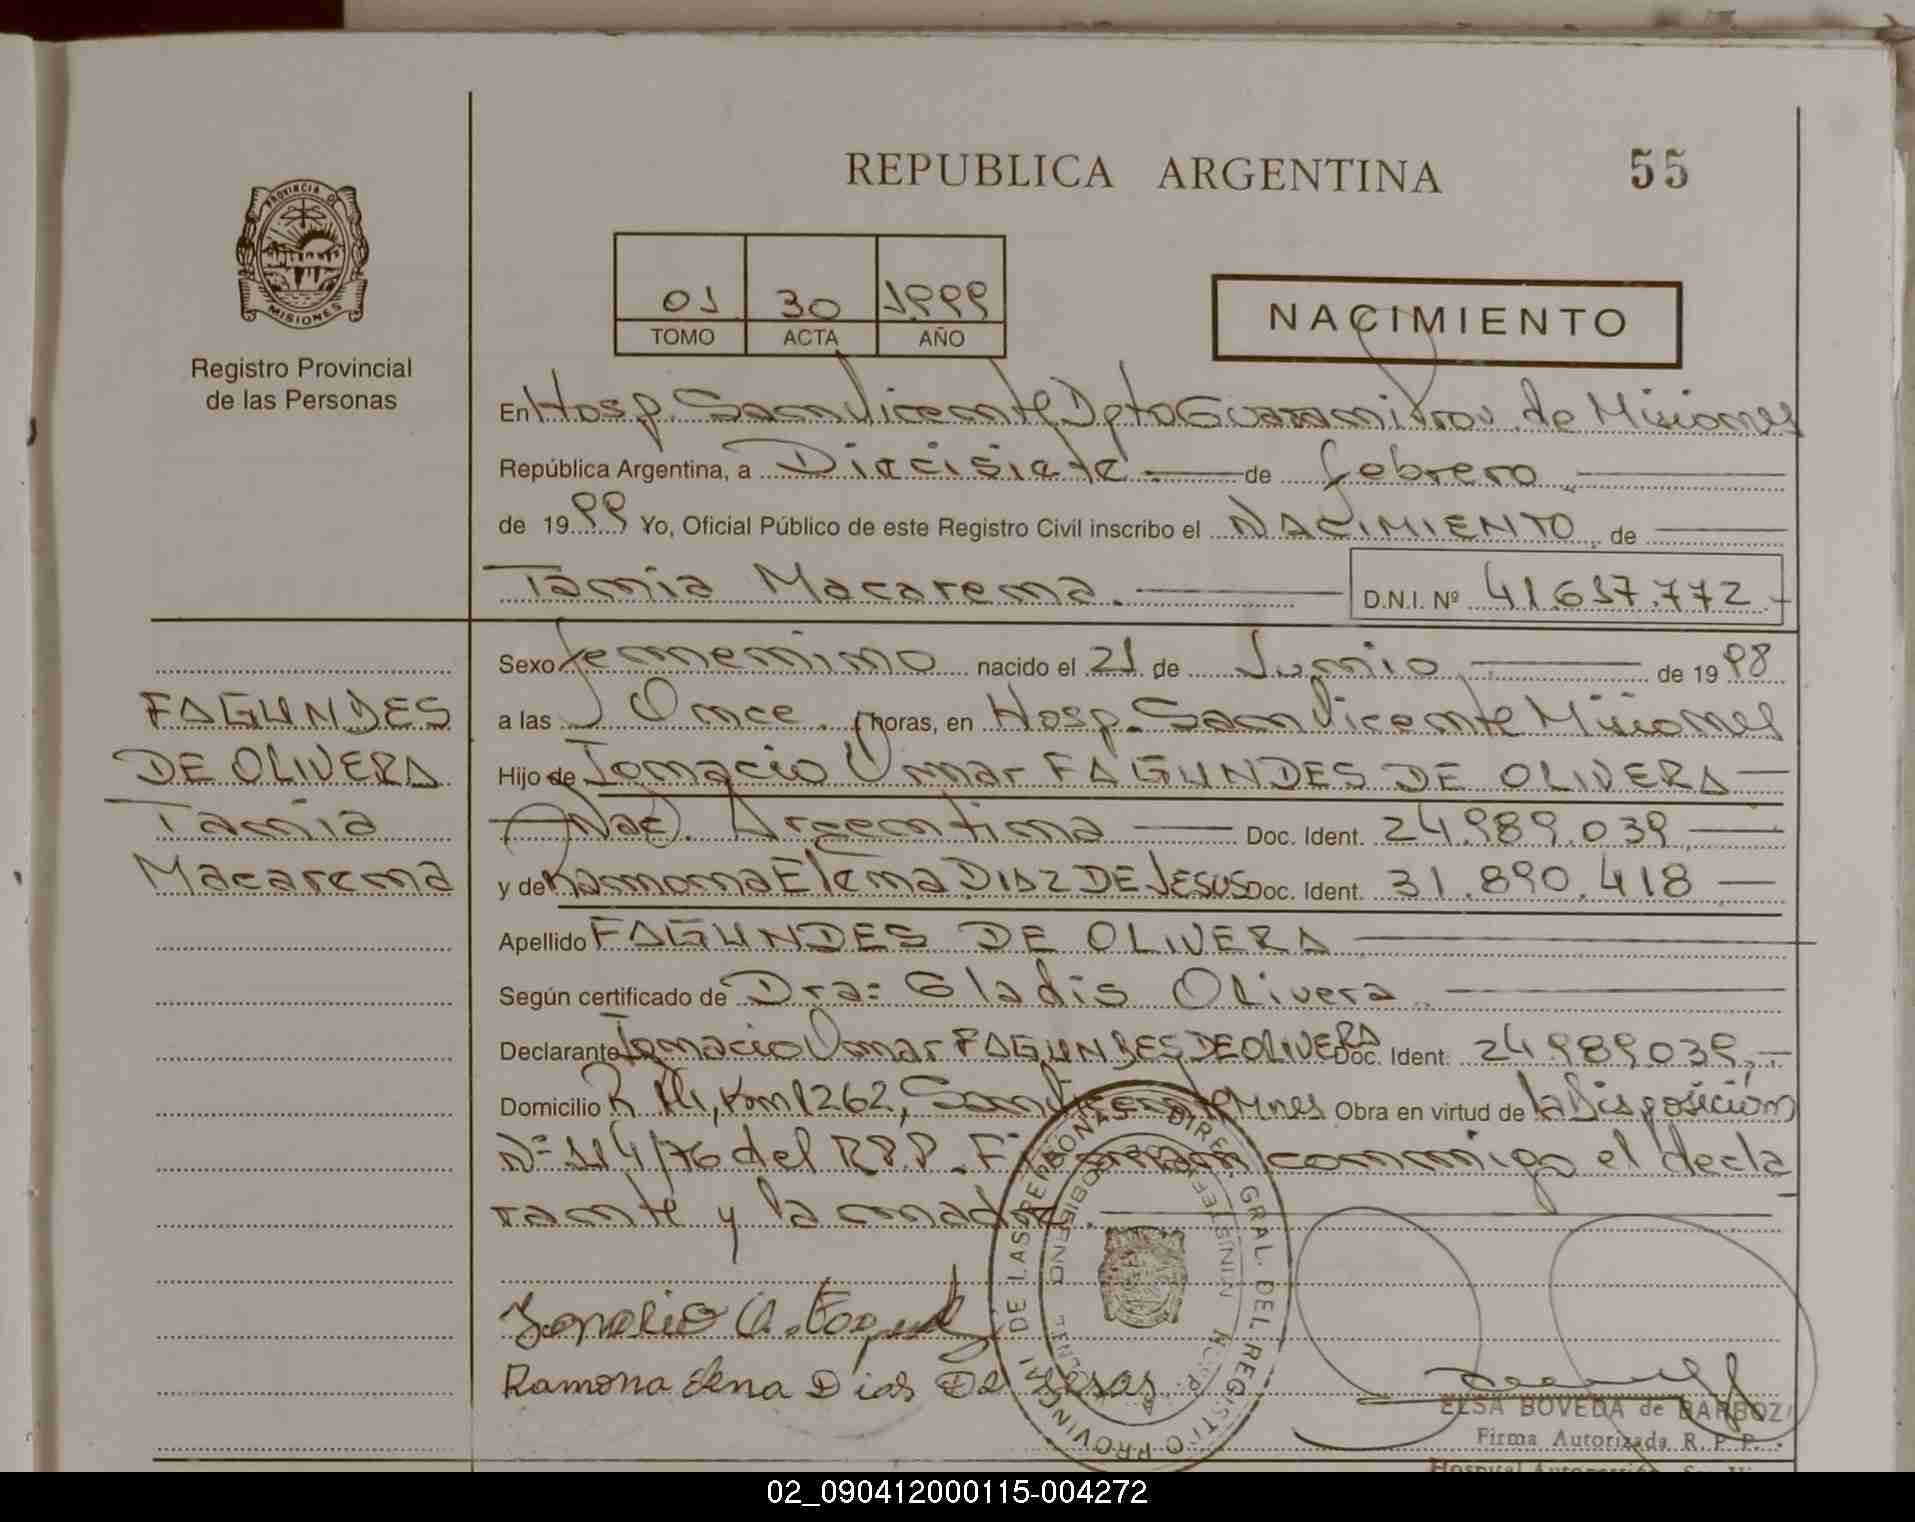 REPUBLICA ARGENTINA
55
PROVINCIA DE
MISIONES
Registro Provincial
de las Personas
01 30 1.999
TOMO ACTA AÑO
NACIMIENTO
En Hosp. San Vicente Dpto Guarani Prov. de Misiones
República Argentina, a Diecisiete de febrero
de 1999 Yo, Oficial Público de este Registro Civil inscribo el NACIMIENTO de
Tania Macarena. D.N.I. Nº 41.637.772
Sexo femenino nacido el 21 de Junio de 1998
a las Once. horas, en Hosp. San Vicente Misiones
Hijo de Ignacio Omar FAGUNDES DE OLIVERA
Nac. Argentina Doc. Ident. 24.989.039
y de Ramona Elena DIAZ DE JESUS Doc. Ident. 31.890.418
Apellido FAGUNDES DE OLIVERA
Según certificado de Dra: Gladis Olivera
Declarante Ignacio Omar FAGUNDES DE OLIVERA Doc. Ident. 24.989.039
Domicilio R 14, Km 1262, San Vicente Mnes Obra en virtud de la Disposición
Nº 114/76 del R.P.P. Firman conmigo el decla
rante y la madre.
FAGUNDES
DE OLIVERA
Tania
Macarena
Ignacio O. Fagund
Ramona Elena Dias De Jesus
DIREC. GRAL. DEL REGISTRO PROVINCIAL DE LAS PERSONAS
ELSA BOVEDA de BARBOZA
Firma Autorizada R. P. P.
02_090412000115-004272